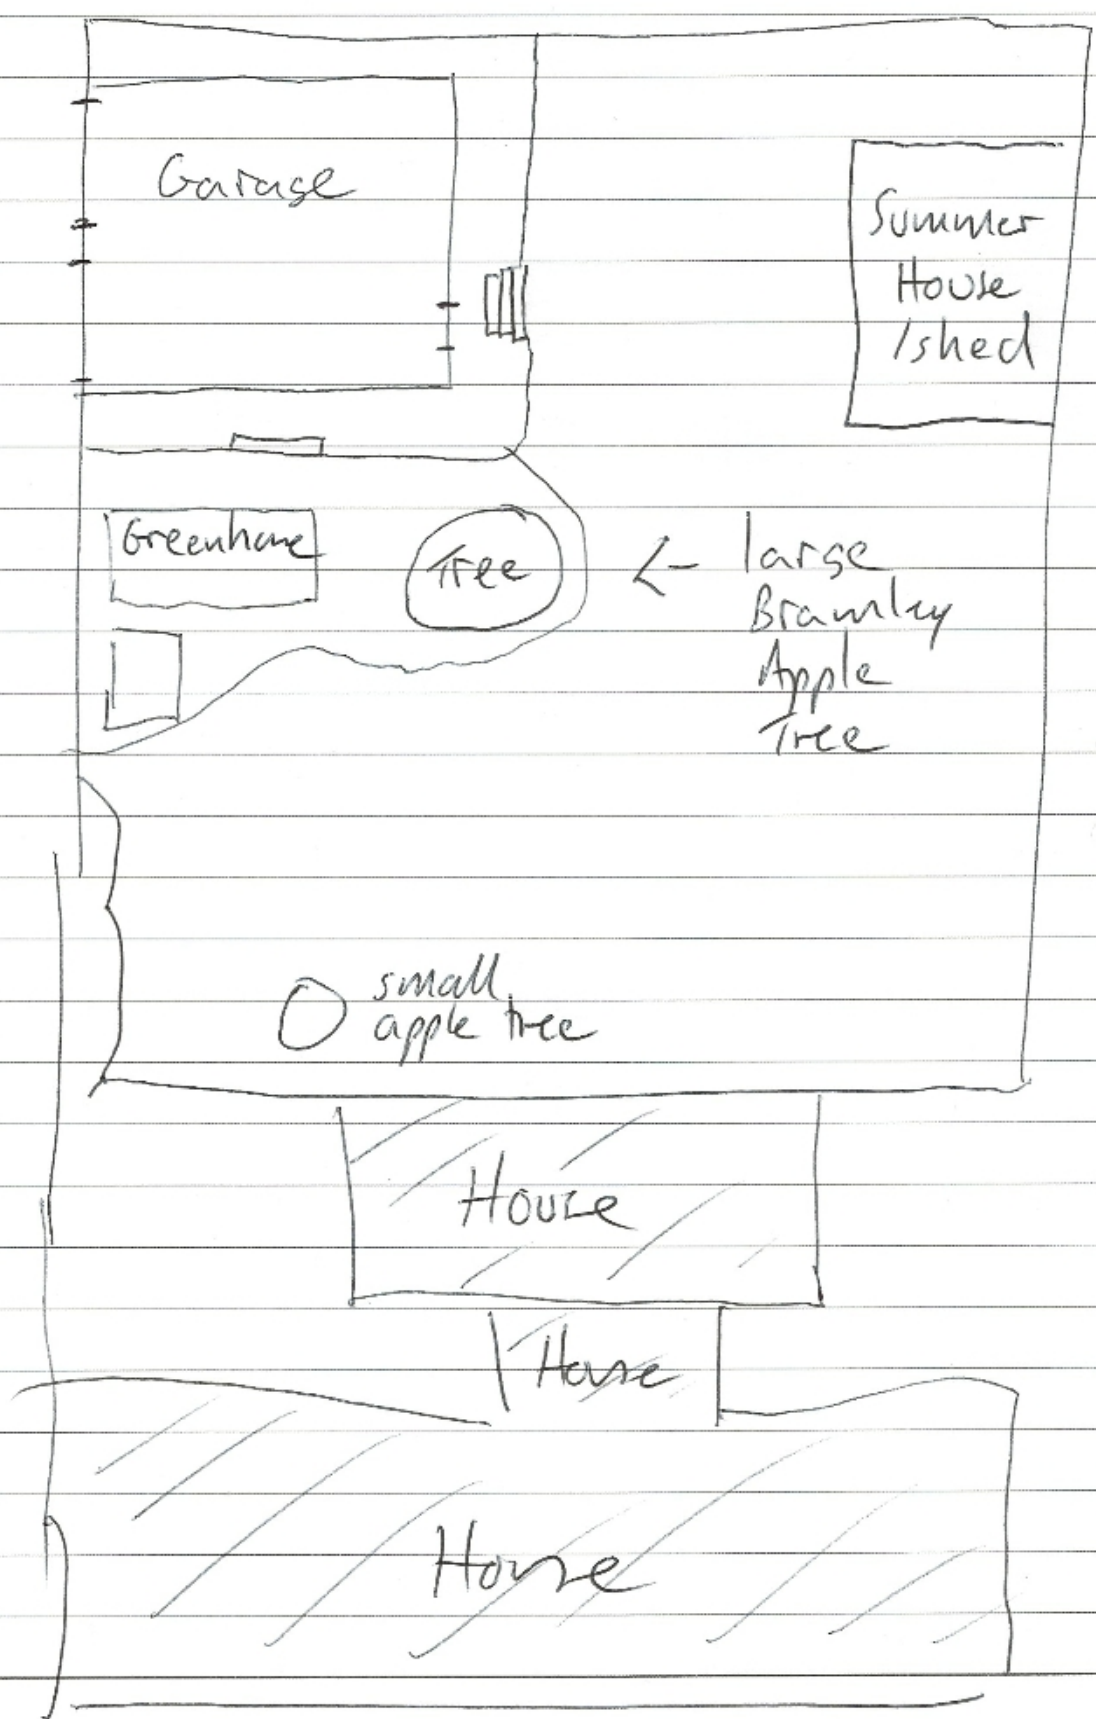 Garage
Summer
House
/shed
Greenhouse
Tree
← large
Bramley
Apple
Tree
small
apple tree
House
House
House